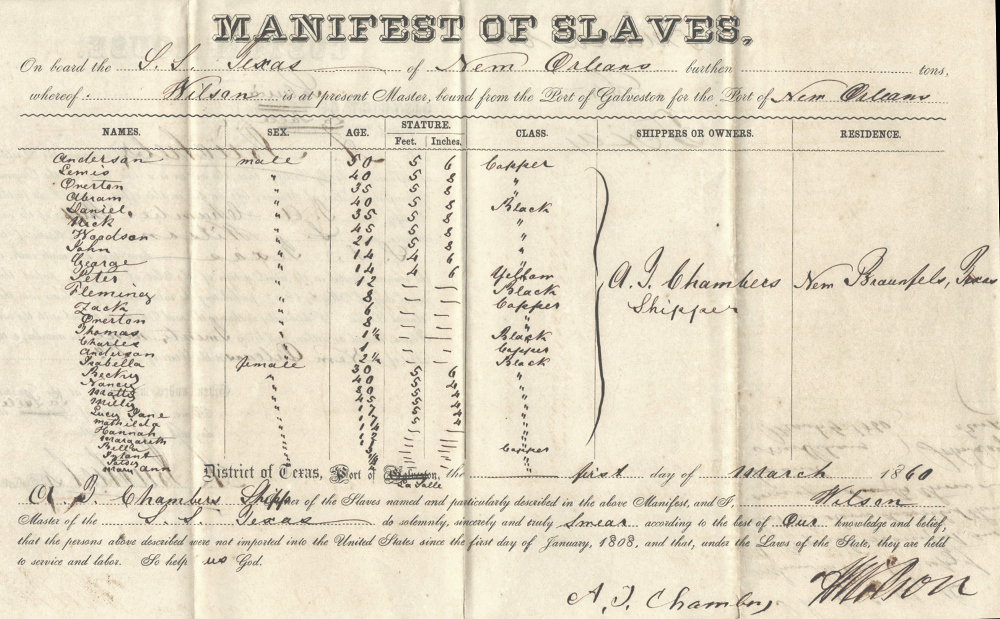 MANIFEST OF SLAVES,
On board the S. S. Texas of New Orleans burthen tons,
whereof Wilson is at present Master, bound from the Port of Galveston for the Port of New Orleans
NAMES. SEX. AGE. STATURE. CLASS. SHIPPERS OR OWNERS. RESIDENCE.
Feet. Inches.
Anderson male 50 5 6 Copper
Lewis " 40 5 8 "
Overton " 35 5 8 "
Abram " 40 5 8 "
Daniel " 35 5 8 Black
Nick " 45 5 8 "
Woodson " 21 5 8 "
John " 14 4 6 "
George " 14 4 6 "
Peter " 12 Yellow
Fleming " 8 Black
Zack " 6 Copper
Overton " 8 "
Thomas " Black
Charles " 1 Copper
Anderson " Black
Isabella female 30 5 6
Becky " 40 5
Nancy "
Matty "
Milly "
Lucy Jane "
Mathilda "
Hannah "
Margareth "
Bella " Copper
Infant "
Patsey "
Mary Ann "
A. J. Chambers New Braunfels, Texas
Shipper
District of Texas, Port of Galveston, the first day of March 1860
La Salle
A. J. Chambers Shipper of the Slaves named and particularly described in the above Manifest, and I, Wilson
Master of the S. S. Texas do solemnly, sincerely and truly Swear according to the best of Our knowledge and belief,
that the persons above described were not imported into the United States since the first day of January, 1808, and that, under the Laws of the State, they are held
to service and labor. So help us God.
A. J. Chambers Wilson